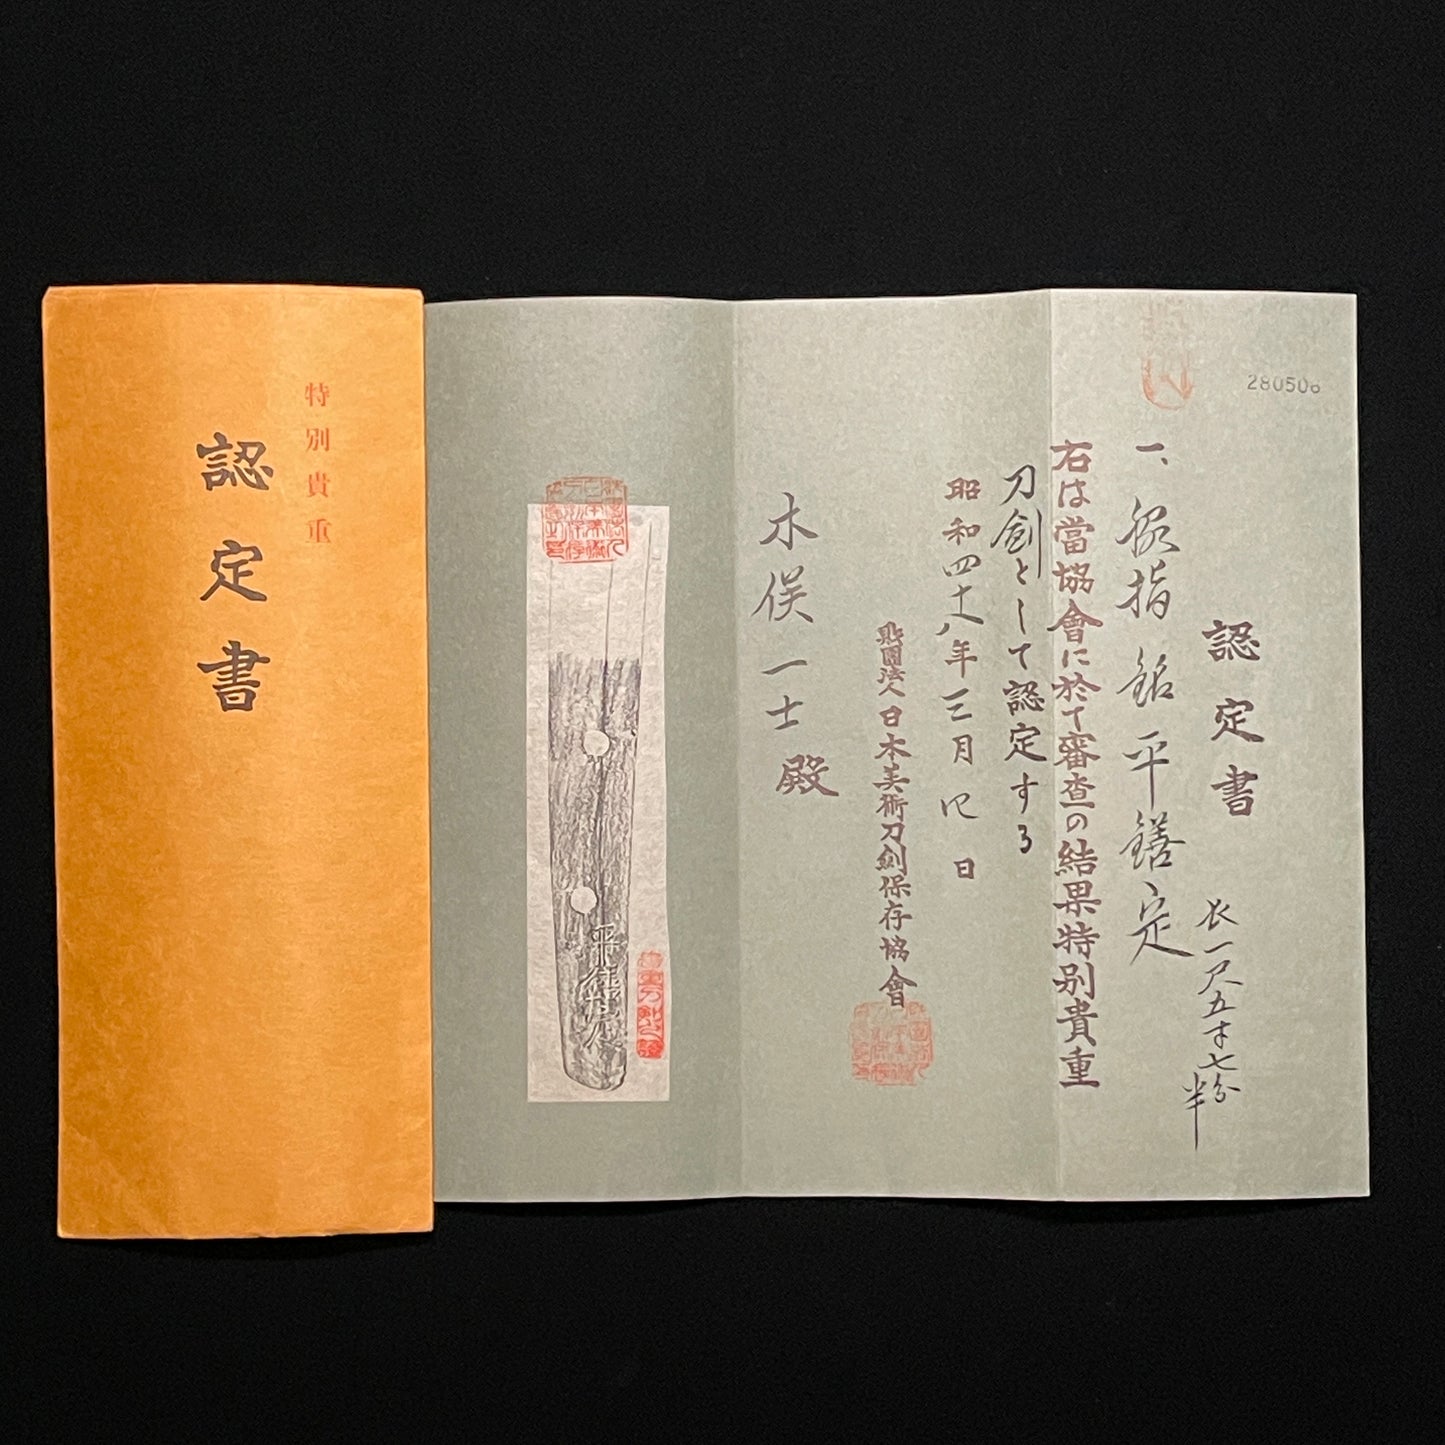 特別貴重
認定書
280506
認定書
一、脇指 銘 平鎮定
長一尺五寸七分半
右は當協會に於て審査の結果特別貴重
刀劍として認定する
昭和四十八年三月 日
財團法人日本美術刀劍保存協會
木俣一士殿